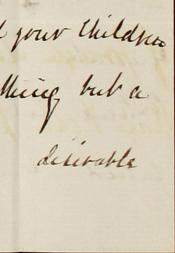 your Children
thing but a
desirable